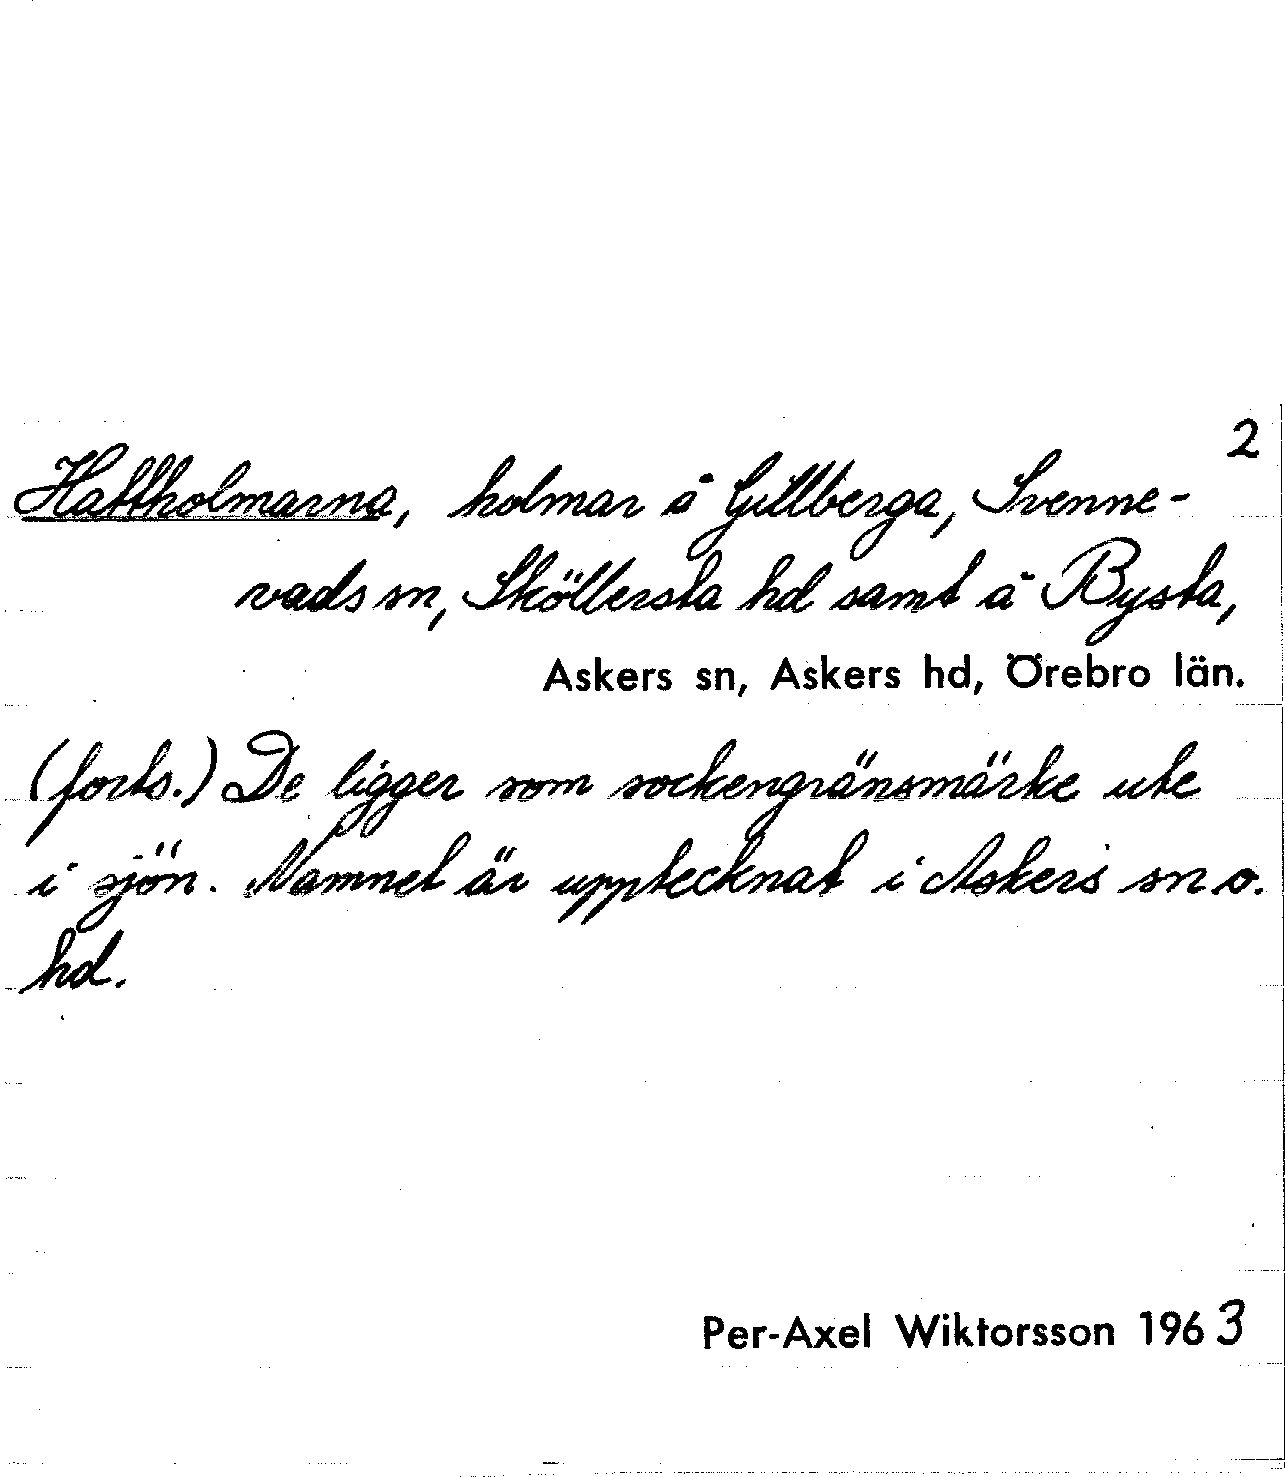 2
Hattholmarna, holmar å Gillberga, Svenne-
vads sn, Sköllersta hd samt å Bysta,
Askers sn, Askers hd, Örebro län.
(forts.) De ligger som sockengränsmärke ute
i sjön. Namnet är upptecknat i Askers sn o.
hd.
Per-Axel Wiktorsson 1963